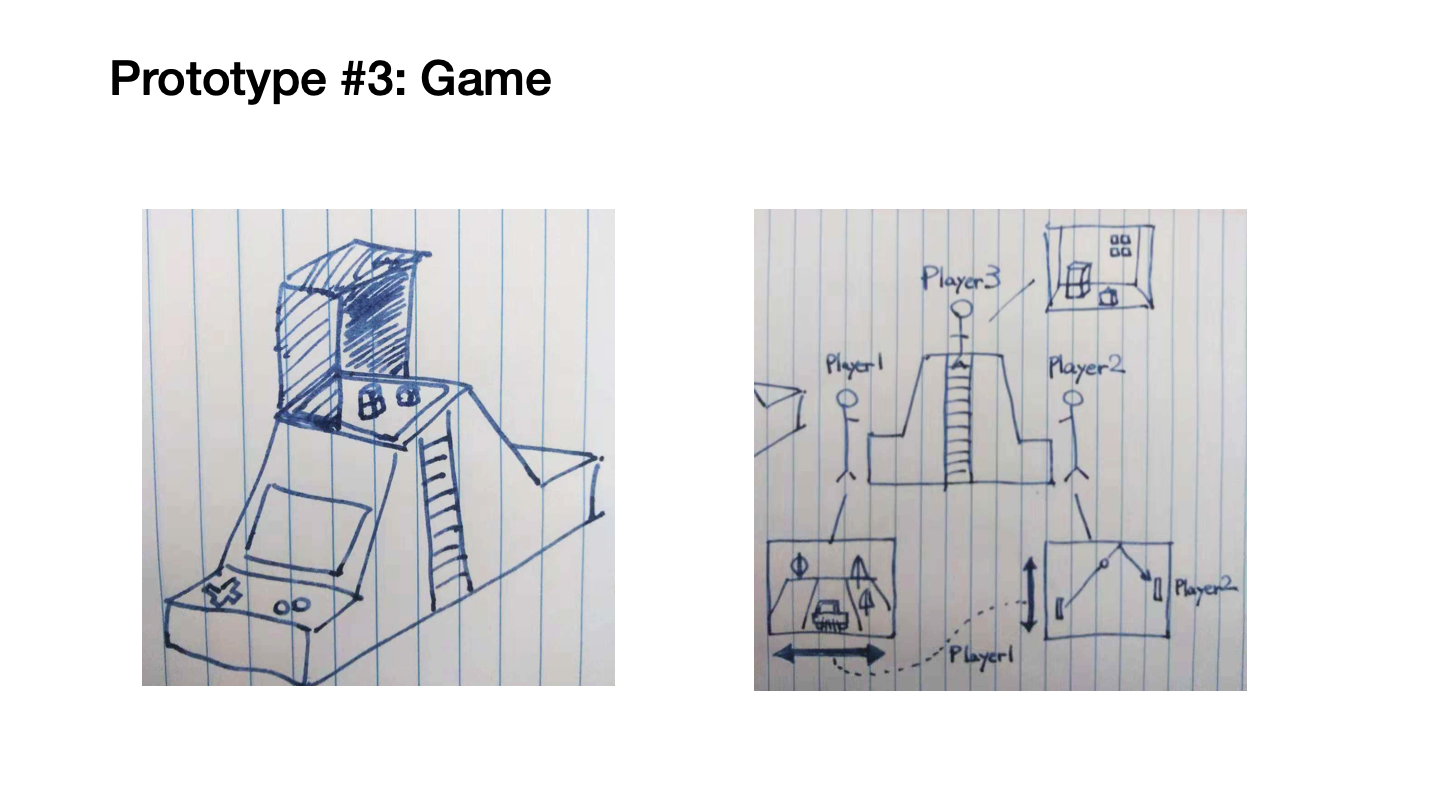 Prototype #3: Game
Player3
Player1
Player2
Player2
Player1